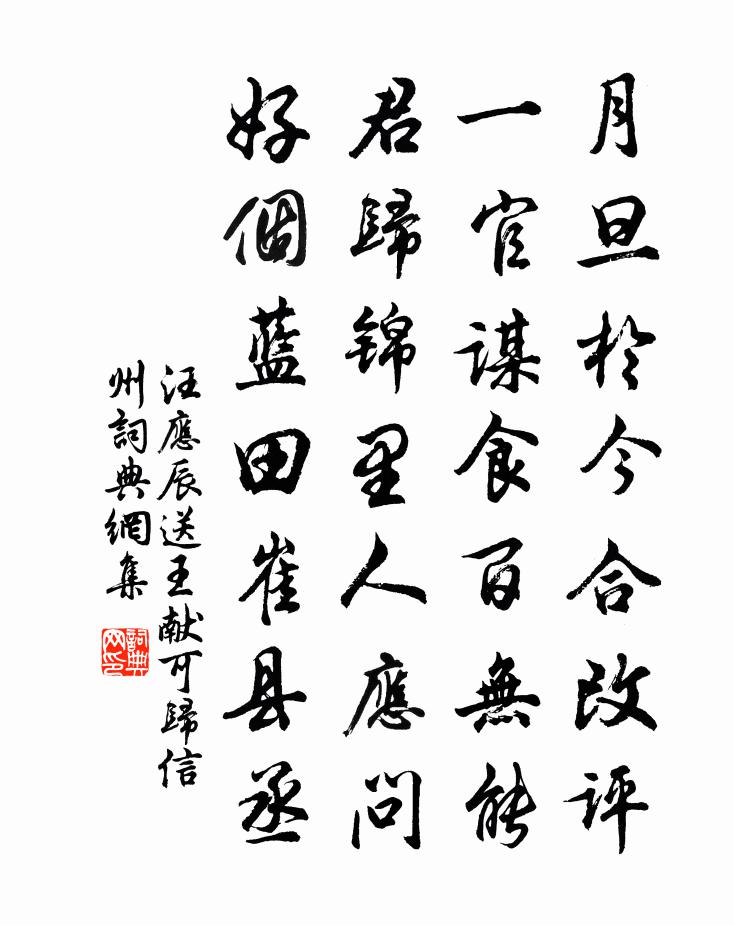 月旦於今合改評
一官謀食百無能
君歸錦里人應問
好個藍田崔县丞
汪應辰送王献可歸信
州詞典網集
詞典网印